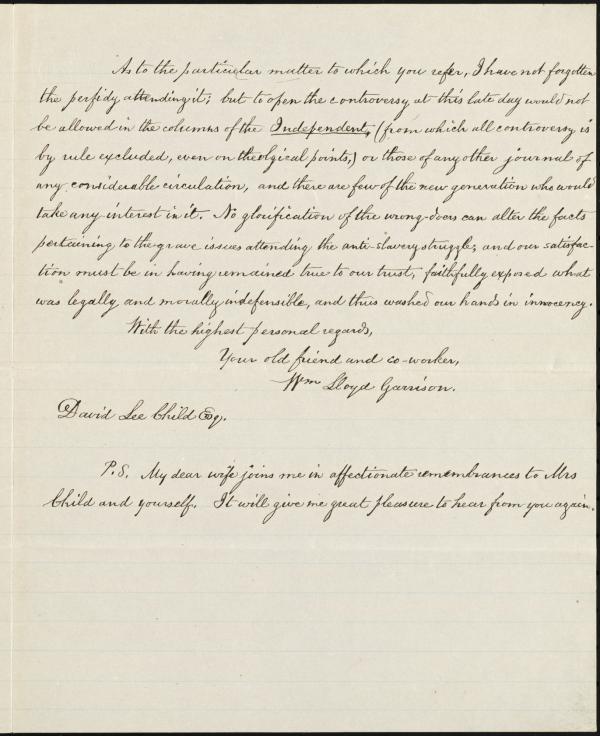 As to the particular matter to which you refer, I have not forgotten
the perfidy attending it; but to open the controversy at this late day would not
be allowed in the columns of the Independent, (from which all controversy is
by rule excluded, even on theolgical points,) or those of any other journal of
any considerable circulation, and there are few of the new generation who would
take any interest in it. No glorification of the wrong-doers can alter the facts
pertaining to the grave issues attending the anti-slavery struggle; and our satisfac-
tion must be in having remained true to our trust, faithfully exposed what
was legally and morally indefensible, and thus washed our hands in innocency.
With the highest personal regards,
Your old friend and co-worker,
Wm Lloyd Garrison.
David Lee Child Esq.
P.S. My dear wife joins me in affectionate remembrances to Mrs
Child and yourself. It will give me great pleasure to hear from you again.